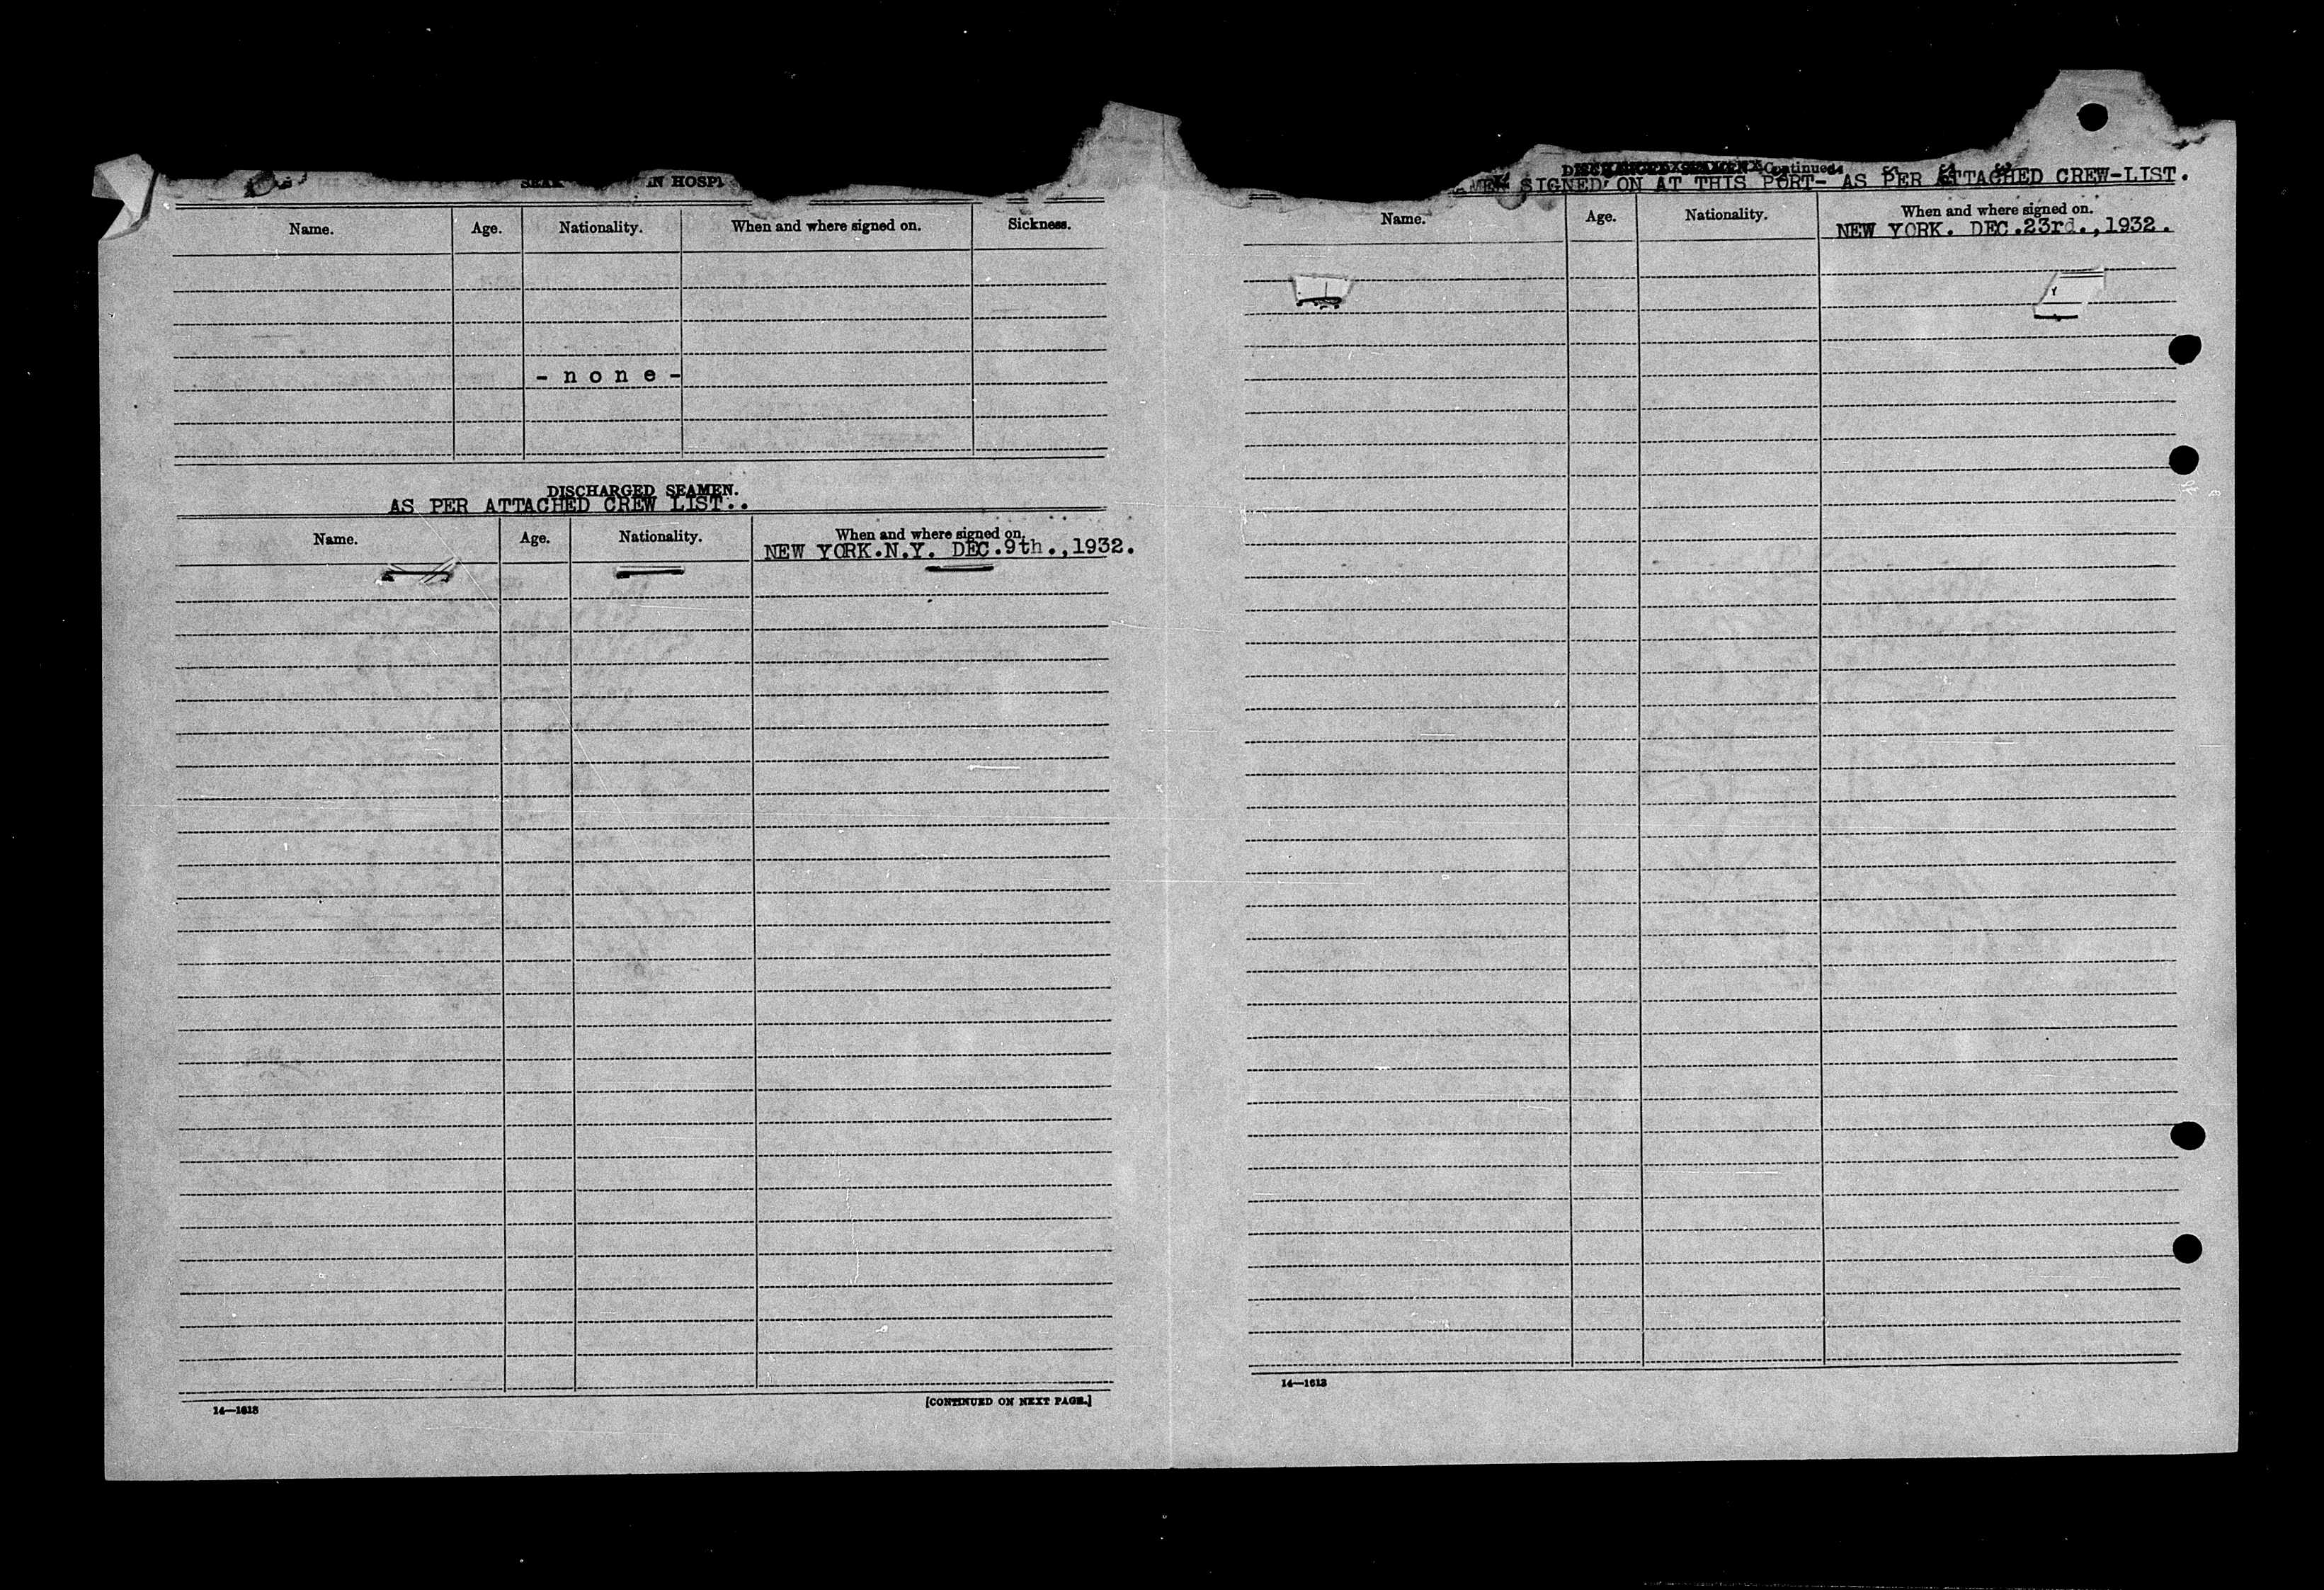 IN HOSPI
Name. Age. Nationality. When and where signed on. Sickness.
- n o n e -
DISCHARGED SEAMEN.
AS PER ATTACHED CREW LIST..
Name. Age. Nationality. When and where signed on.
NEW YORK.N.Y. DEC.9th.,1932.
14—1613
[CONTINUED ON NEXT PAGE.]
DISCHARGED SEAMEN—Continued.
SIGNED ON AT THIS PORT- AS PER ATTACHED CREW-LIST.
Name. Age. Nationality. When and where signed on.
NEW YORK. DEC.23rd.,1932.
14—1613